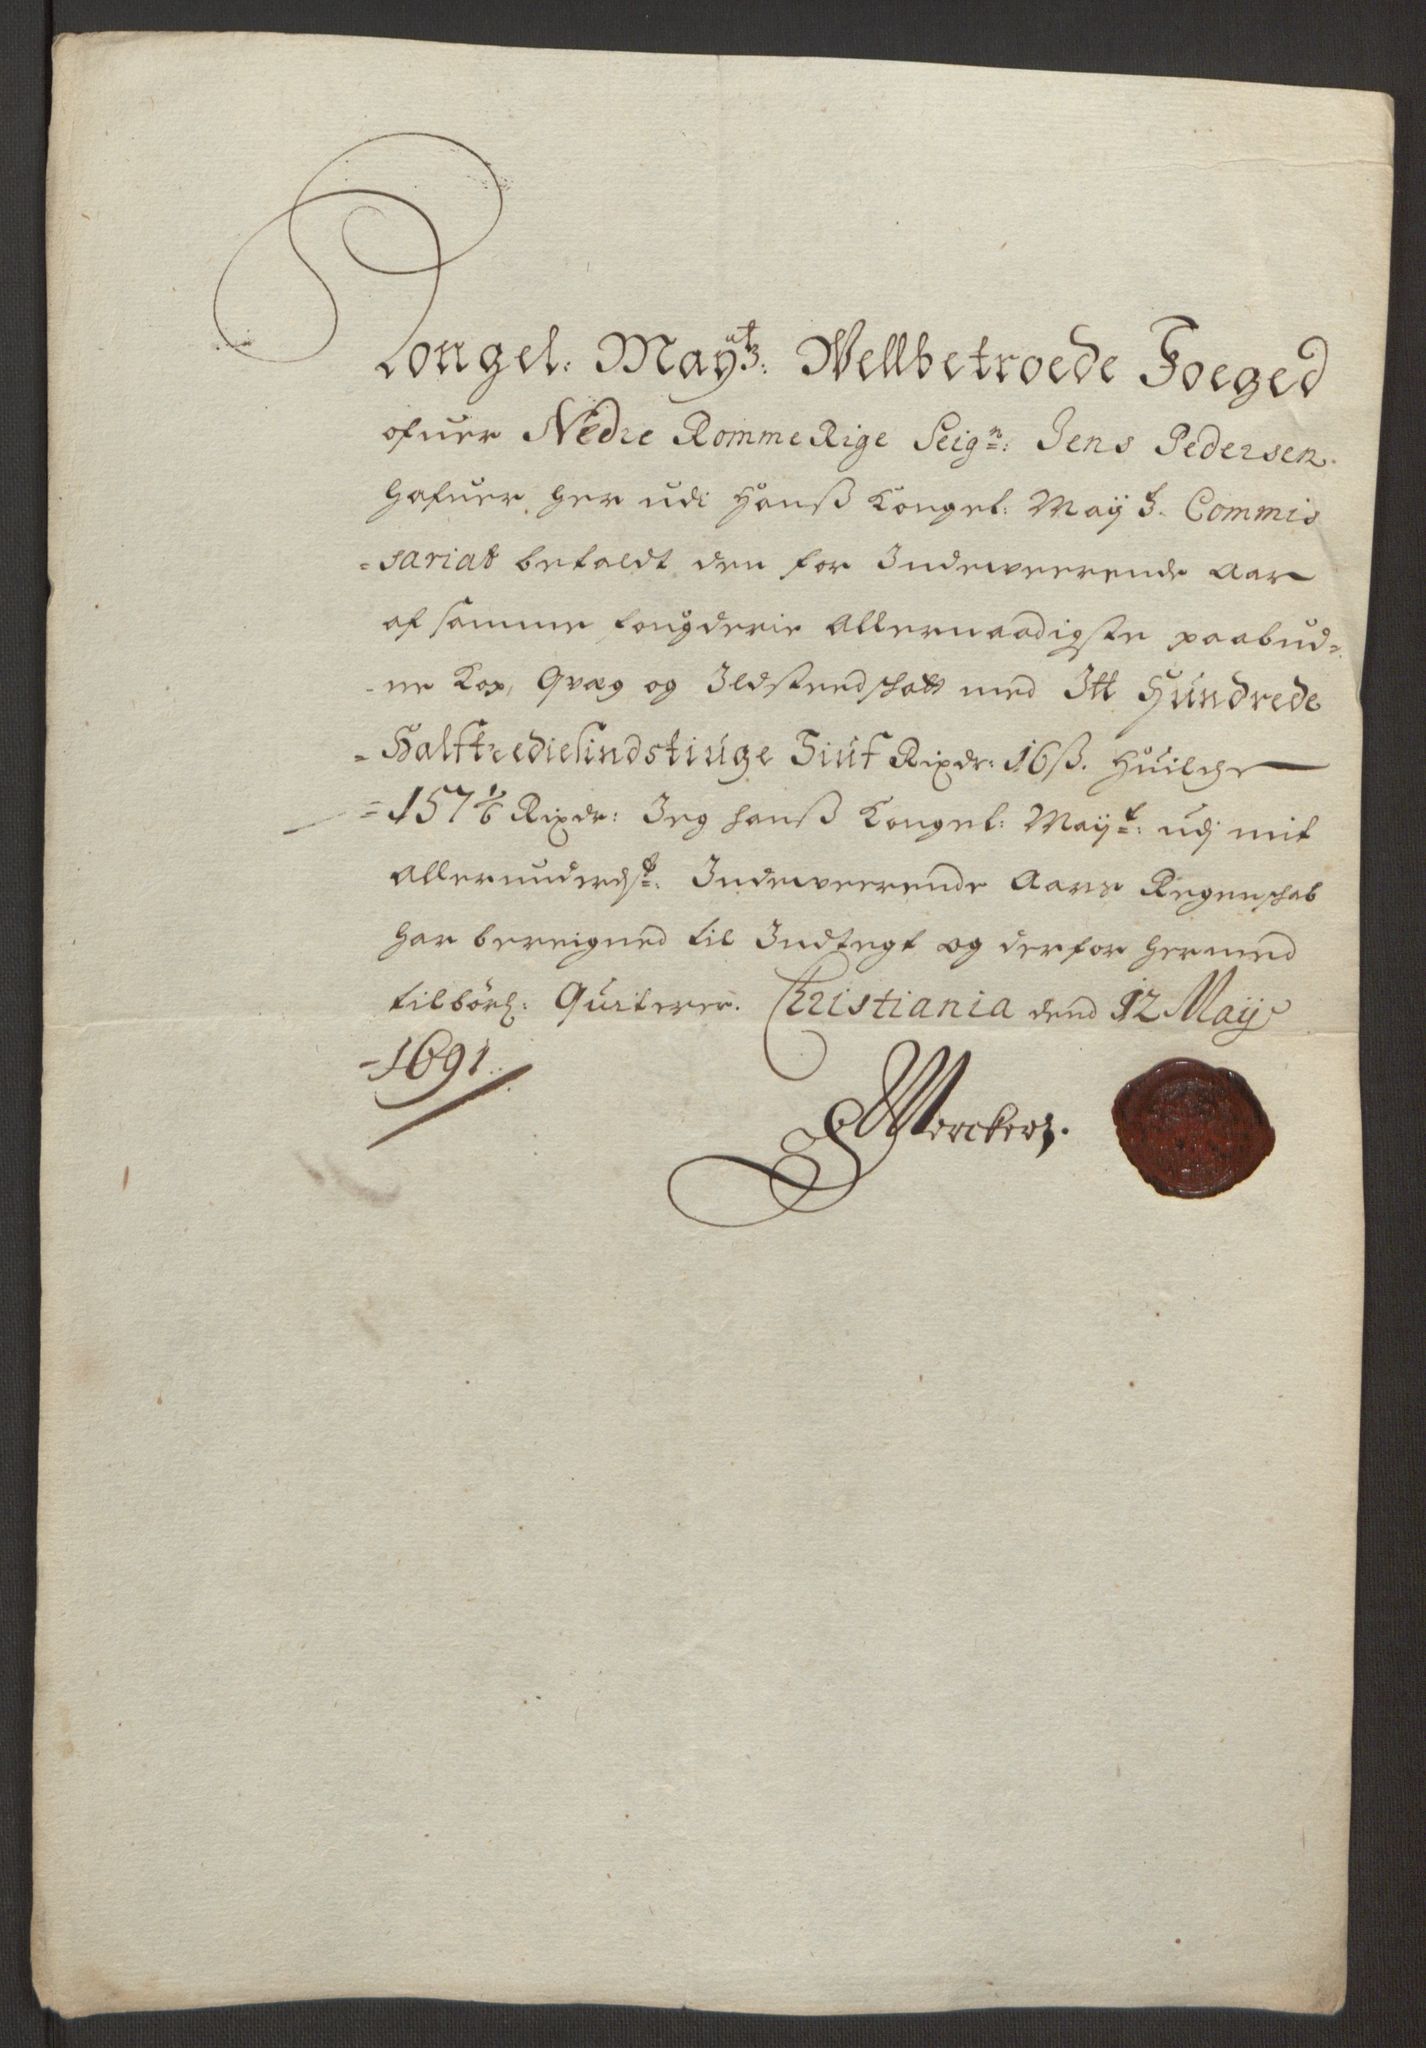 Kongel: Mayᵗˢ: Wellbetroede Foeged
ofuer Nedre RommeRige Seigⁿ: Jens Pedersen
hafuer her udi Hanß Kongel: Mayᵗˢ. Commis
=sariat betaldt den for Indeweerende Aar
af samme fougderie allernaadigste paabud=
=ne Kop, Qvæg og Ildstendschatt med Itt Hundrede
=Halftrediesindstiuge Siuf Rixdr: 16ß. Huilche
=157 1/6 Rixdr: Jeg hanß Kongel: Mayᵗ: udj mit
allerunderdⁿˢᵗ: Indeweerende Aars Regenschab
har bereigned til Indtegt og derfor hermed
tilbørl: Quiterer. Christiania dend 12 Maij
=1691.
Werckertz.